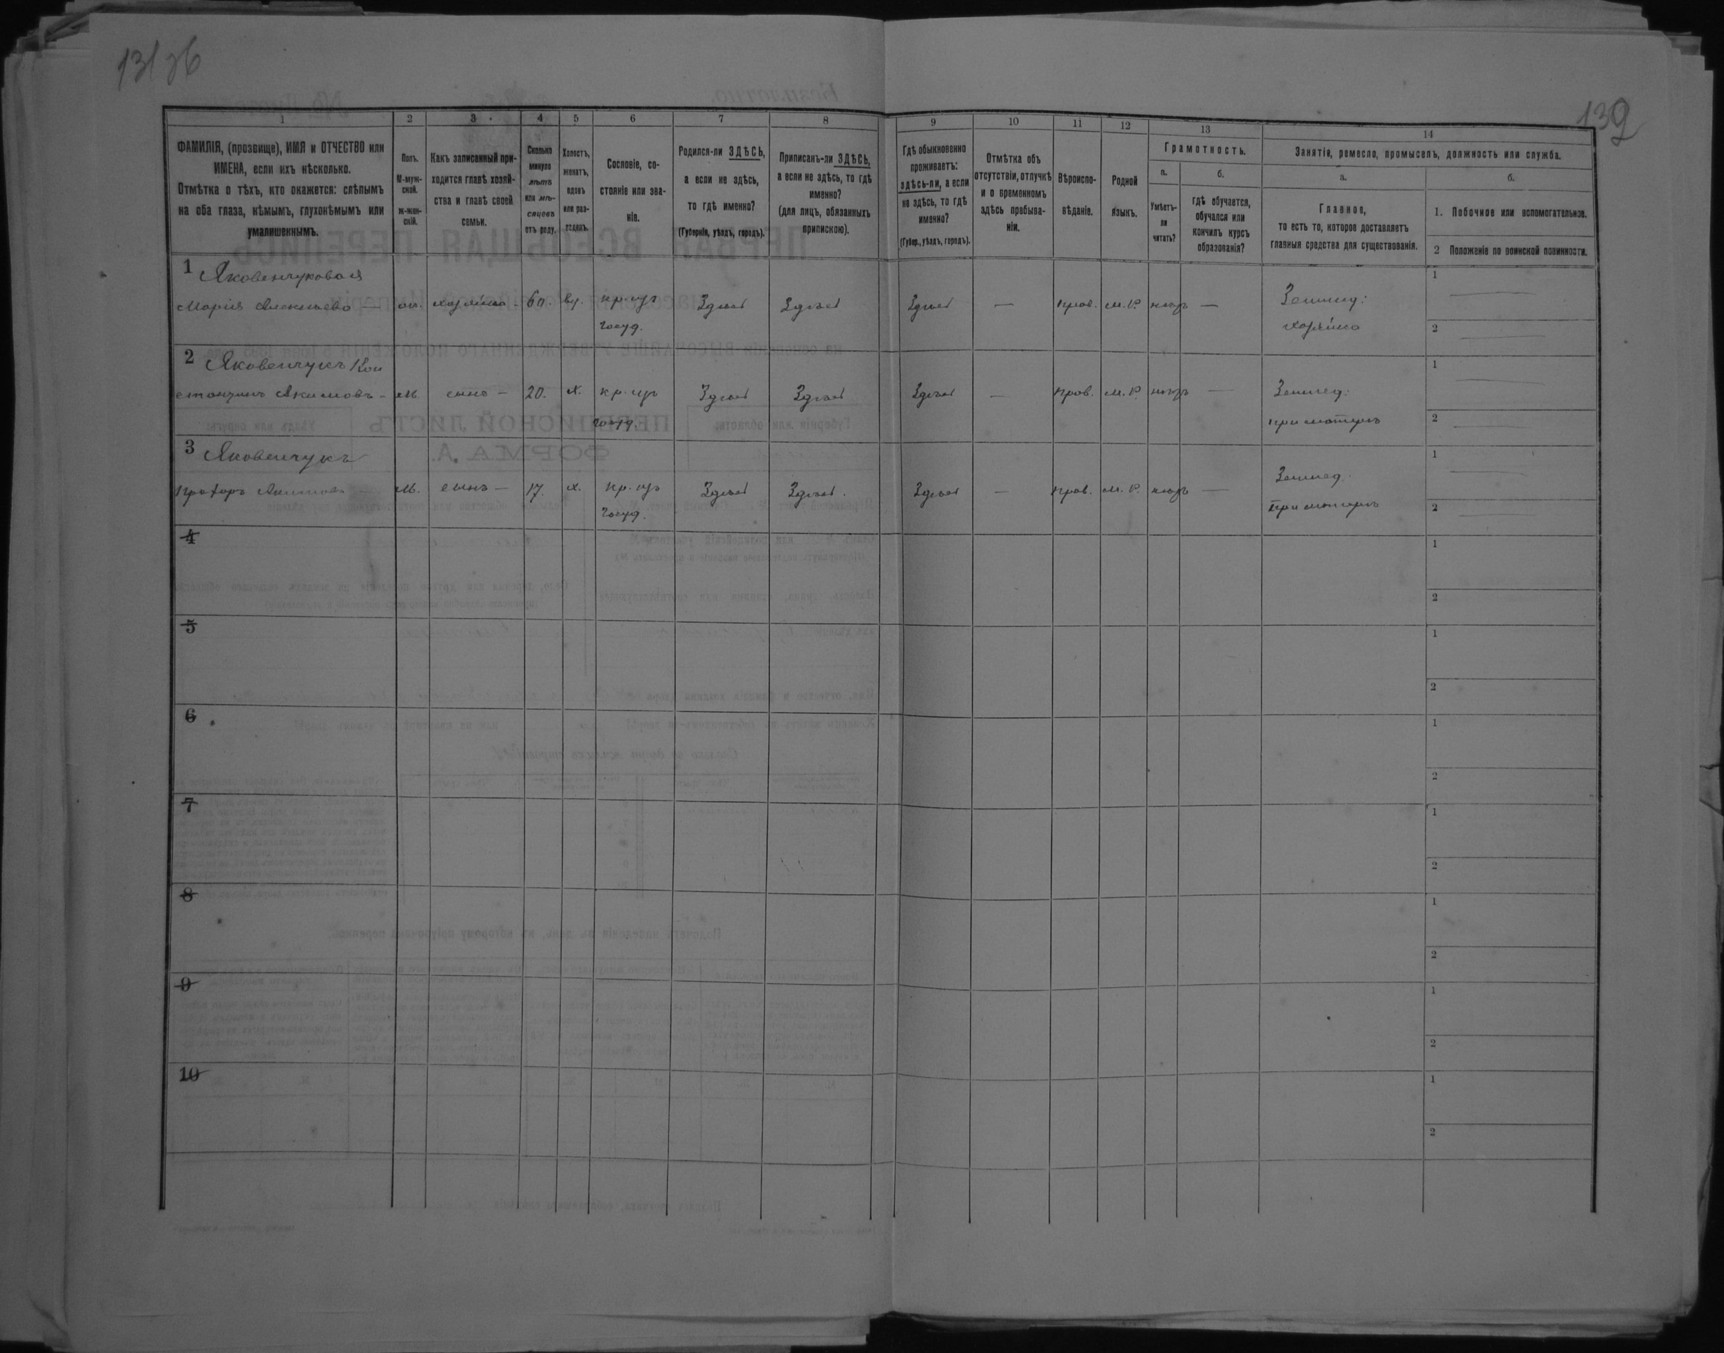 131 об
139
1
2
3
4
5
6
7
8
9
10
11
12
13
14
ФАМИЛІЯ, (прозвище), ИМЯ и ОТЧЕСТВО или
ИМЕНА, если ихъ нѣсколько.
Отмѣтка о тѣхъ, кто окажется: слѣпымъ
на оба глаза, нѣмымъ, глухонѣмымъ или
умалишеннымъ.
Полъ.
М-муж-
ской.
ж-жен-
скій.
Какъ записанный при-
ходится главѣ хозяй-
ства и главѣ своей
семьи.
Сколько
минуло
лѣтъ
или мѣ-
сяцевъ
отъ роду.
Холостъ,
женатъ,
вдовъ
или раз-
веденъ.
Сословіе, со-
стояніе или зва-
ніе.
Родился-ли ЗДѢСЬ,
а если не здѣсь,
то гдѣ именно?
(Губернія, уѣздъ, городъ).
Приписанъ-ли ЗДѢСЬ,
а если не здѣсь, то гдѣ
именно?
(для лицъ, обязанныхъ
припискою).
Гдѣ обыкновенно
проживаетъ:
здѣсь-ли, а если
не здѣсь, то гдѣ
именно?
(Губер., уѣздъ, городъ).
Отмѣтка объ
отсутствіи, отлучкѣ
и о временномъ
здѣсь пребыва-
ніи.
Вѣроиспо-
вѣданіе.
Родной
языкъ.
Грамотность.
а.
Умѣетъ-
ли
читать?
б.
гдѣ обучается,
обучался или
кончилъ курсъ
образованія?
Занятіе, ремесло, промыселъ, должность или служба.
а.
Главное,
то есть то, которое доставляетъ
главныя средства для существованія.
б.
1. Побочное или вспомогательное.
2 Положеніе по воинской повинности.
1 Яковенчукова
Марія Алексѣева — хозяйка 60. вд. кр. изъ Здѣсь Здѣсь Здѣсь — прав. м.р. нѣтъ — Землед:
госуд. хозяйка
1
2
2 Яковенчукъ Кон
стантинъ Акимовъ - м сынъ — 20. х. кр. изъ Здѣсь Здѣсь Здѣсь — прав. м.р. нѣтъ — Землед:
госуд. при матери
1
2
3 Яковенчукъ
Прохоръ Акимовъ м. сынъ — 17. х. кр. изъ Здѣсь Здѣсь. Здѣсь — прав. м.р. нѣтъ — Землед.
госуд. при матери
1
2
4
1
2
5
1
2
6
1
2
7
1
2
8
1
2
9
1
2
10
1
2